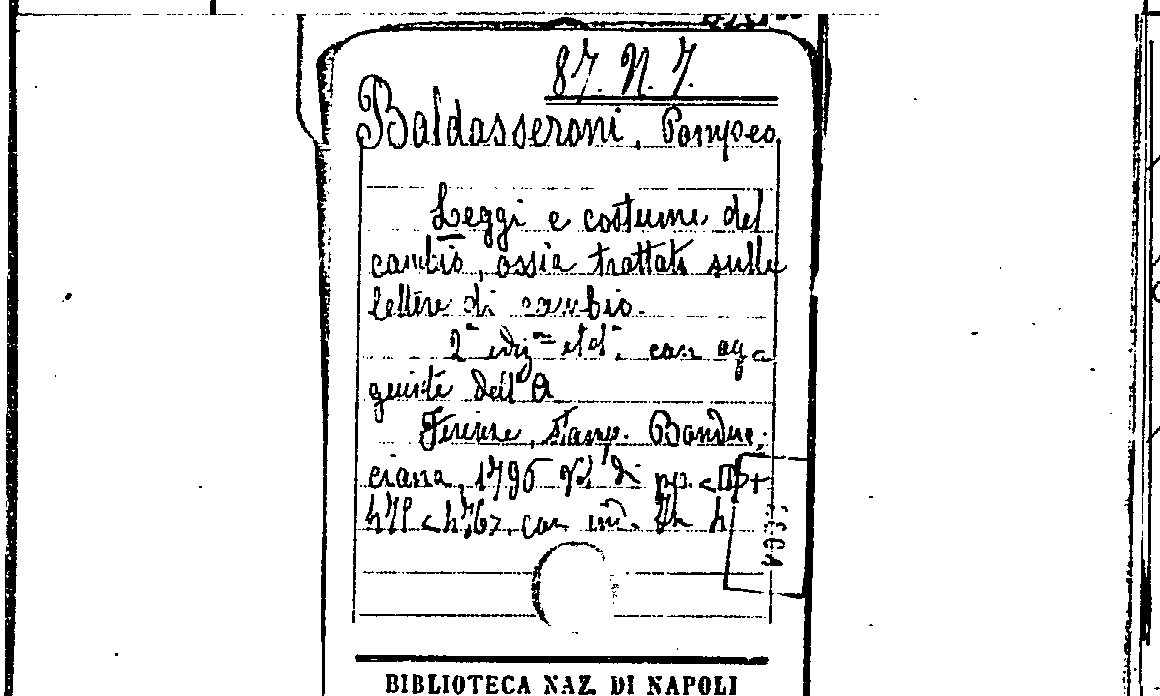 87. N. 7.
Baldasseroni, Pompeo
Leggi e costumi del
cambio, ossia trattato sulle
lettere di cambio.
2ª ediz.ne con ag-
giunte dell'A
Firenze, stamp. Bonduc-
ciana, 1796 di pp.
con ind.
BIBLIOTECA NAZ. DI NAPOLI